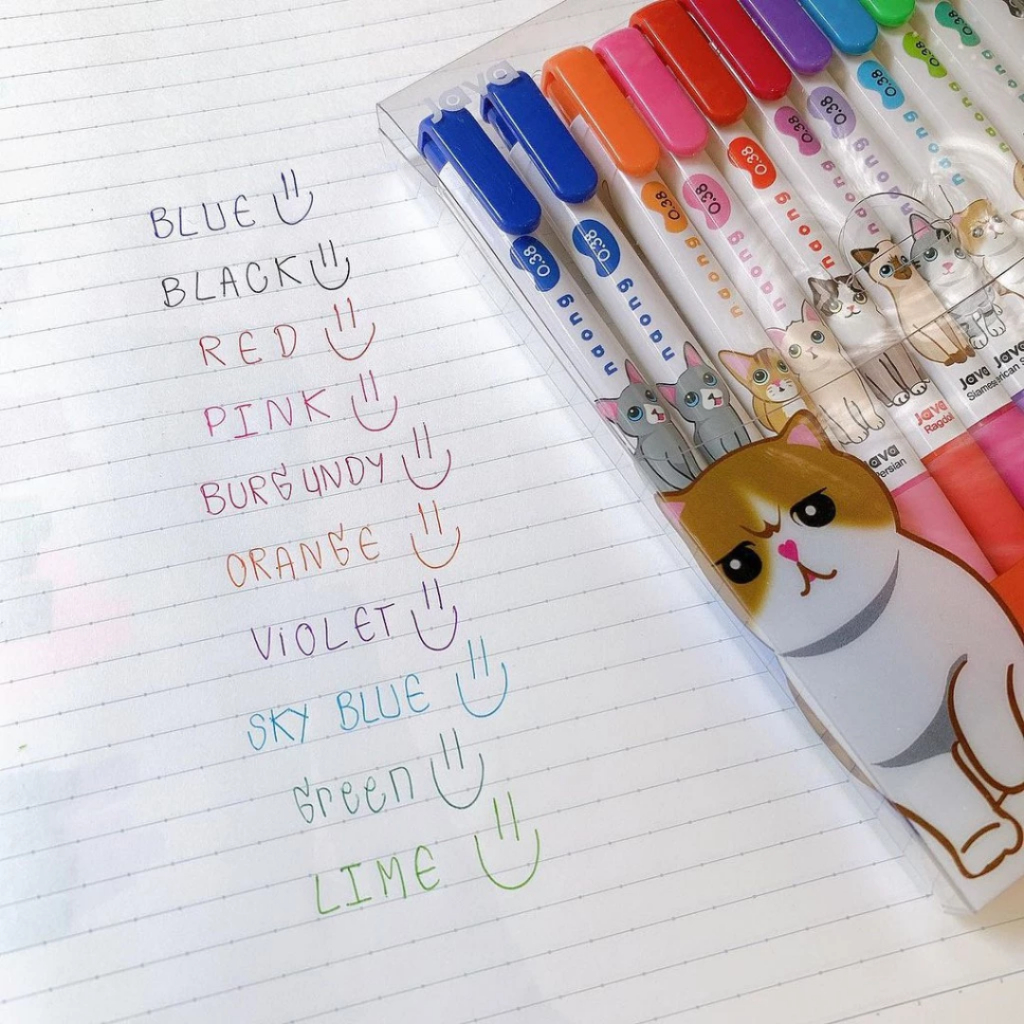 BLUE
BLACK
RED
PINK
BURGUNDY
ORANGE
VIOLET
SKY BLUE
Green
LIME
java
0.38 naong
0.38 naong
0.38 naong
0.38 naong
0.38 naong
0.38 naong
0.38 naong
0.38 naong
0.38
0.38
java
Persian
java
Ragdoll
java
Siamese
java